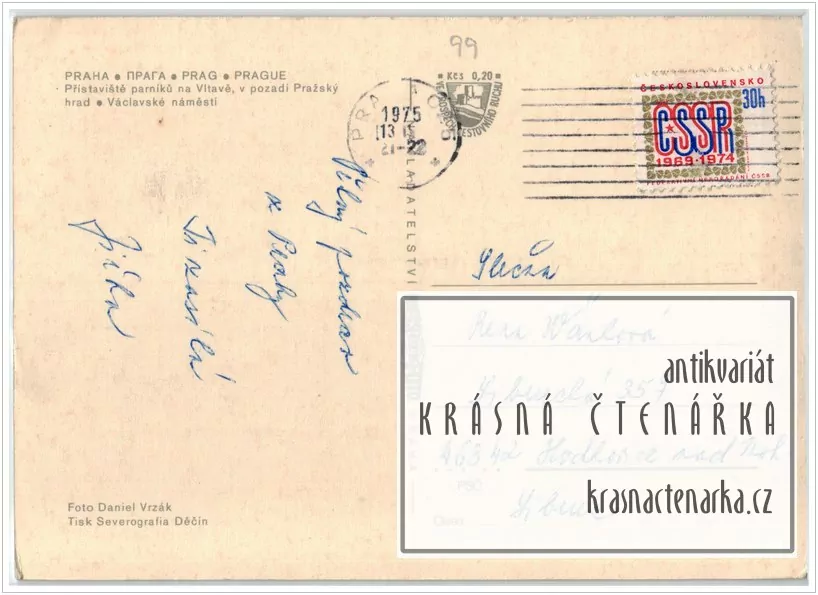 99
PRAHA ● ПРАГА ● PRAG ● PRAGUE
Přístaviště parníků na Vltavě, v pozadí Pražský
hrad ● Václavské náměstí
Kčs 0,20
PRA
1975
21-22
ČESKOSLOVENSKO
30h
ČSSR
1969·1974
FEDERATIVNÍ USPOŘÁDÁNÍ ČSSR
Pěkný pozdrav
z Prahy
Ti zasílá
Jiřka
Slečna
359
463 42 Hodkovice nad Moh.
PSČ
antikvariát
KRÁSNÁ ČTENÁŘKA
krasnactenarka.cz
Foto Daniel Vrzák
Tisk Severografia Děčín